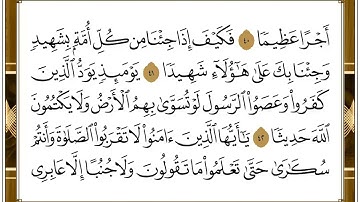 أَجْرًا عَظِيمًا ٤٠ فَكَيْفَ إِذَا جِئْنَا مِن كُلِّ أُمَّةٍۭ بِشَهِيدٍ
وَجِئْنَا بِكَ عَلَىٰ هَٰٓؤُلَآءِ شَهِيدًا ٤١ يَوْمَئِذٍ يَوَدُّ ٱلَّذِينَ
كَفَرُوا۟ وَعَصَوُا۟ ٱلرَّسُولَ لَوْ تُسَوَّىٰ بِهِمُ ٱلْأَرْضُ وَلَا يَكْتُمُونَ
ٱللَّهَ حَدِيثًا ٤٢ يَٰٓأَيُّهَا ٱلَّذِينَ ءَامَنُوا۟ لَا تَقْرَبُوا۟ ٱلصَّلَوٰةَ وَأَنتُمْ
سُكَٰرَىٰ حَتَّىٰ تَعْلَمُوا۟ مَا تَقُولُونَ وَلَا جُنُبًا إِلَّا عَابِرِى